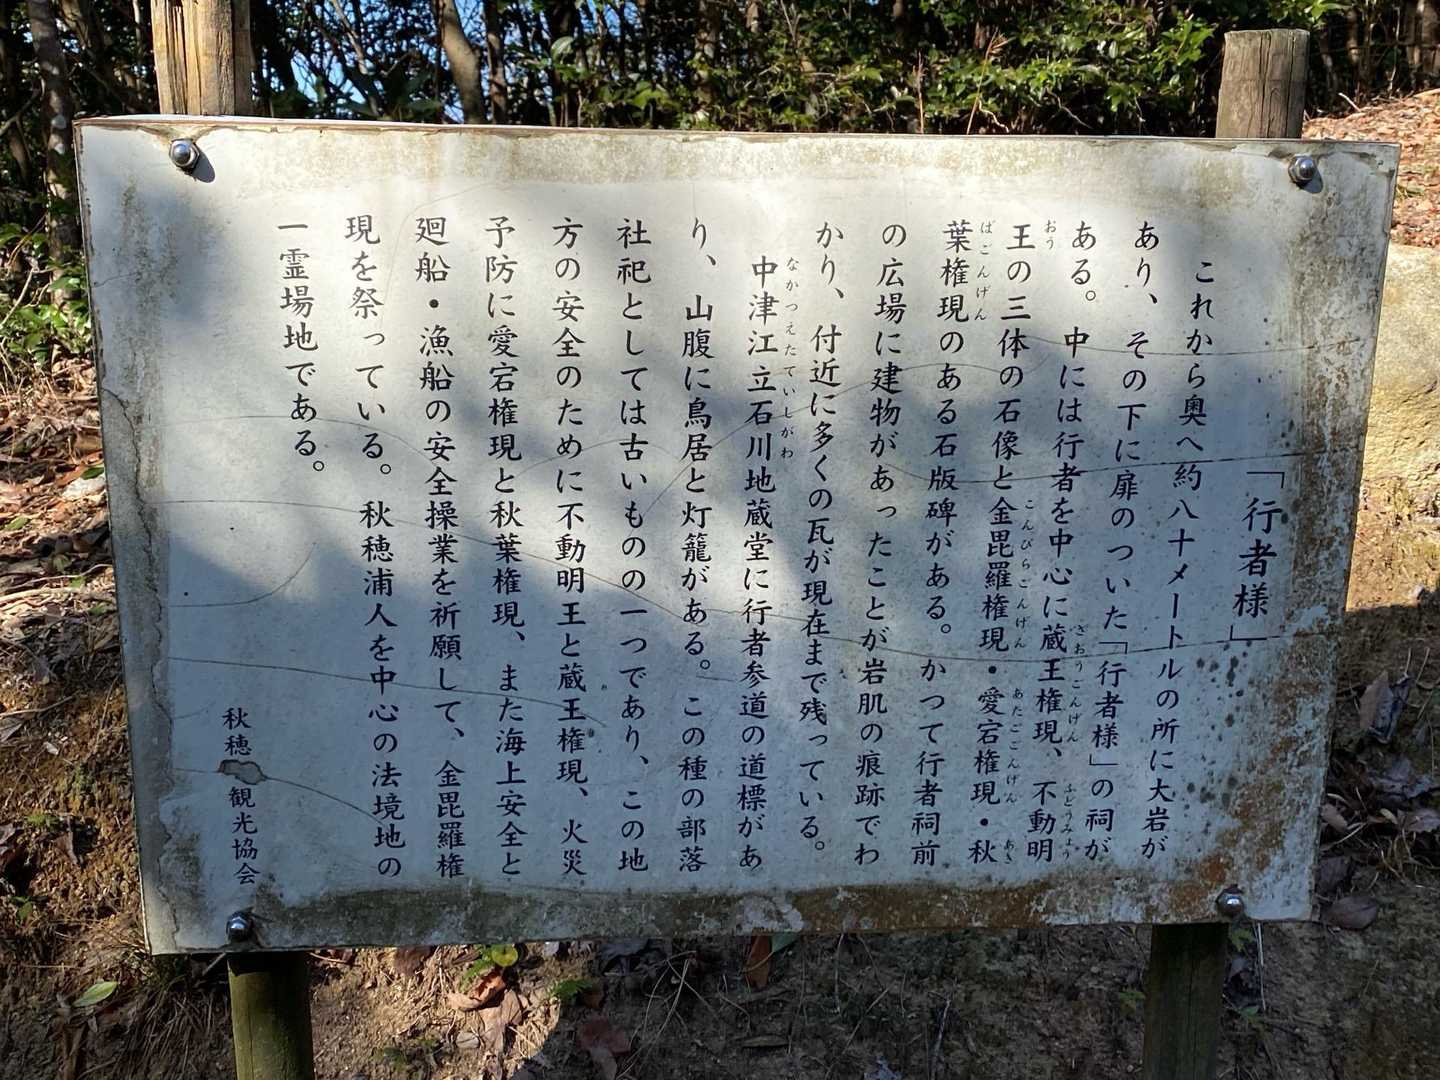 「行者様」
これから奥へ約八十メートルの所に大岩が
あり、その下に扉のついた「行者様」の祠が
ある。中には行者を中心に蔵王権現、不動明
ざおうごんげん
ふどうみょう
王の三体の石像と金毘羅権現・愛宕権現・秋
おう
こんぴらごんげん
あたごごんげん
あき
葉権現のある石版碑がある。かつて行者祠前
ばごんげん
の広場に建物があったことが岩肌の痕跡でわ
かり、付近に多くの瓦が現在まで残っている。
中津江立石川地蔵堂に行者参道の道標があ
なかつえたていしがわ
り、山腹に鳥居と灯籠がある。この種の部落
社祀としては古いものの一つであり、この地
方の安全のために不動明王と蔵王権現、火災
予防に愛宕権現と秋葉権現、また海上安全と
廻船・漁船の安全操業を祈願して、金毘羅権
現を祭っている。秋穂浦人を中心の法境地の
一霊場地である。
秋穂観光協会